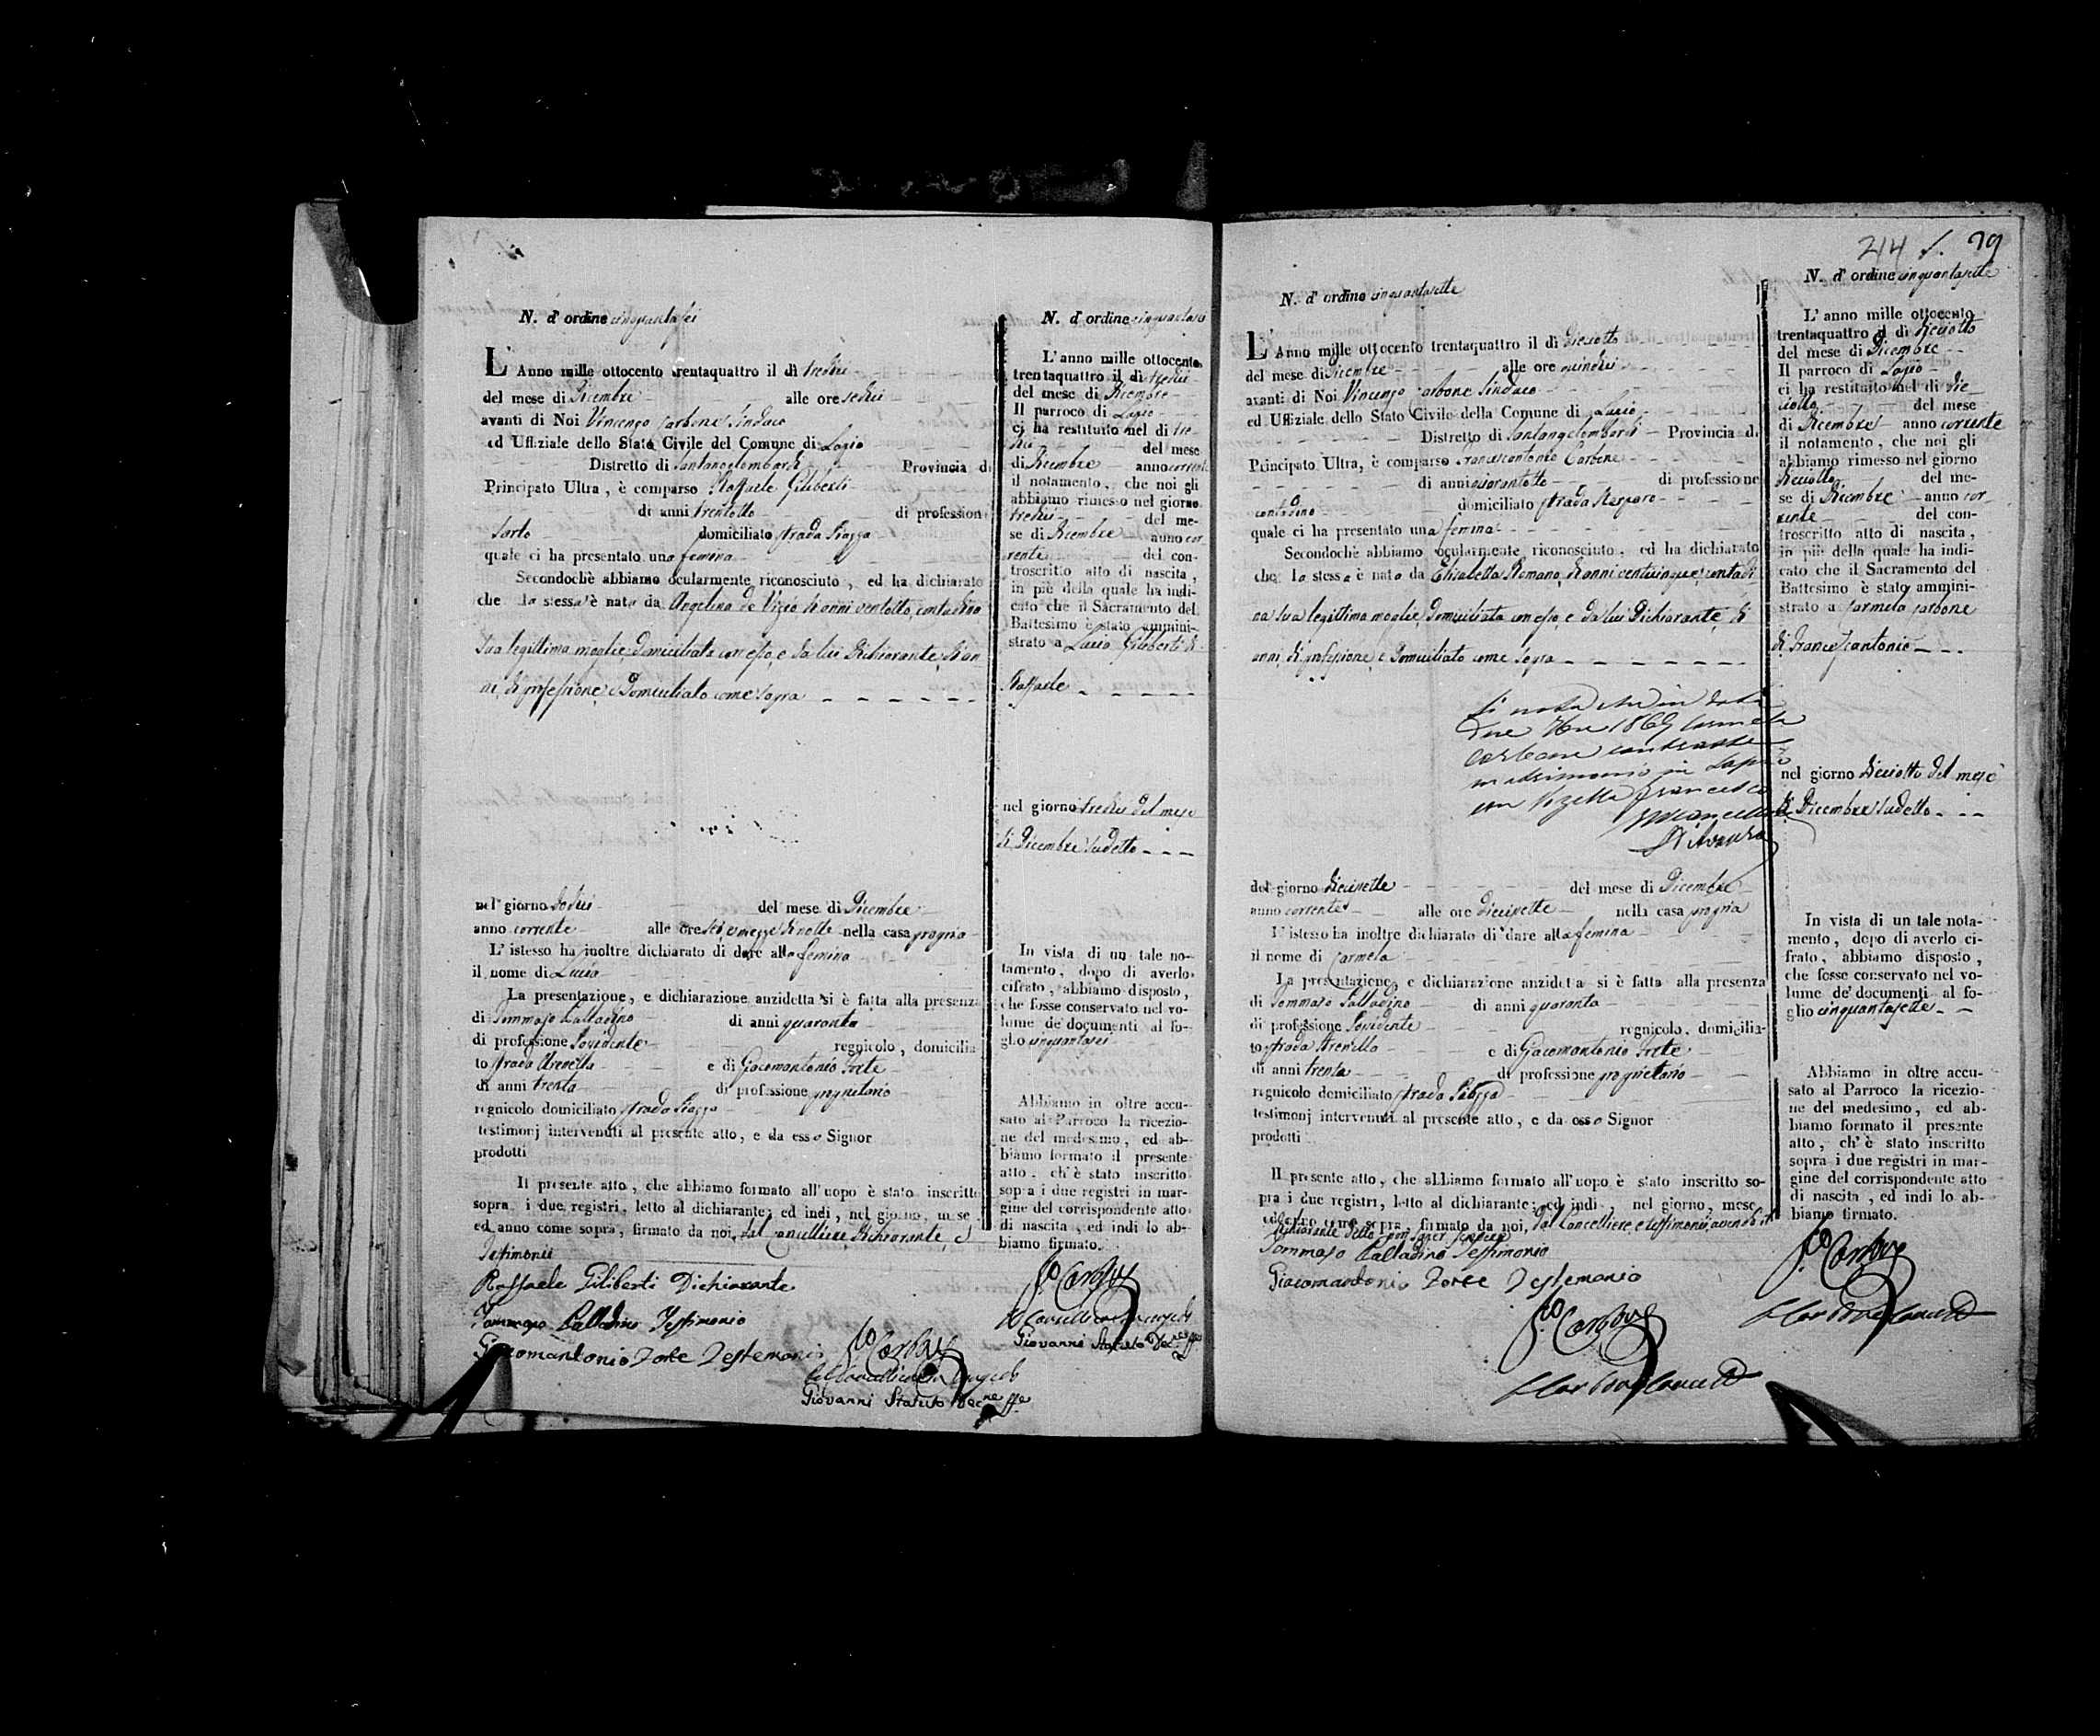 N. d'ordine cinquantasei
L'Anno mille ottocento trentaquattro il dì tredici
del mese di Dicembre alle ore sedici
avanti di Noi Vincenzo Carbone Sindaco
ed Uffiziale dello Stato Civile del Comune di Lapio
Distretto di Santangelombardi Provincia di
Principato Ultra, è comparso Raffaele Giliberti
di anni trentotto di profession
Sarto domiciliato strada Piazza
quale ci ha presentato una femina
Secondochè abbiamo ocularmente riconosciuto, ed ha dichiarato
che la stessa è nata da Angelina de Vizio di anni ventotto, contadina
sua legittima moglie, domiciliata con esso, e da lui Dichiarante, di an
ni, di professione, e domiciliato come sopra
nel giorno dodici del mese di Dicembre
anno corrente alle ore sei e mezza di notte nella casa propria
L'istesso ha inoltre dichiarato di dare alla femina
il nome di Lucia
La presentazione, e dichiarazione anzidetta si è fatta alla presenza
di Tommaso Palladino di anni quaranta
di professione Possidente regnicolo, domicilia-
to strada Arenella e di Giacomantonio Forte
di anni trenta di professione proprietario
regnicolo domiciliato strada Piazza
testimonj intervenuti al presente atto, e da esso Signor
prodotti
Il presente atto, che abbiamo formato all'uopo è stato inscritto
sopra i due registri, letto al dichiarante; ed indi, nel giorno, mese
ed anno come sopra, firmato da noi, dal Cancelliere, Dichiarante, e
Testimonii
Raffaele Giliberti Dichiarante
Tommaso Palladino Testimonio
Giacomantonio Forte Testemonio
Carbone
Giovanni Statuto
N. d'ordine cinquantasei
L'anno mille ottocento
trentaquattro il dì tredici
del mese di Dicembre
Il parroco di Lapio
ci ha restituito nel dì tre-
dici del mese
di Dicembre anno corrente
il notamento, che noi gli
abbiamo rimesso nel giorno
tredici del me-
se di Dicembre anno cor
rente del con-
troscritto atto di nascita,
in piè della quale ha indi-
cato che il Sacramento del
Battesimo è stato ammini-
strato a Lucia Giliberti di
Raffaele
nel giorno tredici del mese
di Dicembre sudetto
In vista di un tale no-
tamento, dopo di averlo
cifrato, abbiamo disposto,
che fosse conservato nel vo-
lume de' documenti al fo-
glio cinquantasei
Abbiamo in oltre accu-
sato al Parroco la ricezio-
ne del medesimo, ed ab-
biamo formato il presente
atto, ch'è stato inscritto
sopra i due registri in mar-
gine del corrispondente atto
di nascita, ed indi lo ab-
biamo firmato.
Carbone
Giovanni Statuto
214 f. 99
N. d'ordine cinquantasette
L'Anno mille ottocento trentaquattro il dì Dieciotto
del mese di Dicembre alle ore quindici
avanti di Noi Vincenzo Carbone Sindaco
ed Uffiziale dello Stato Civile della Comune di Lapio
Distretto di Santangelombardi Provincia di
Principato Ultra, è comparso Francescantonio Carbone
di anni quarantotto di professione
contadino domiciliato strada
quale ci ha presentato una femina
Secondochè abbiamo ocularmente riconosciuto, ed ha dichiarato
che la stessa è nata da Elisabetta Romano, di anni venticinque, contadi
na sua legittima moglie, domiciliata con esso, e da lui Dichiarante, di
anni, di professione, e domiciliato come sopra
Si nota che in data
due 1869 Carmela
Carbone contrasse
matrimonio in Lapio
con Francesco
del giorno diecisette del mese di Dicembre
anno corrente alle ore diecisette nella casa propria
L'istesso ha inoltre dichiarato di dare alla femina
il nome di Carmela
La presentazione, e dichiarazione anzidetta si è fatta alla presenza
di Tommaso Palladino di anni quaranta
di professione Possidente regnicolo, domicilia-
to strada Arenella e di Giacomantonio Forte
di anni trenta di professione proprietario
regnicolo domiciliato strada Piazza
testimonj intervenuti al presente atto, e da esso Signor
prodotti
Il presente atto, che abbiamo formato all'uopo è stato inscritto so-
pra i due registri, letto al dichiarante; ed indi, nel giorno, mese
ed anno come sopra, firmato da noi, dal Cancelliere, e testimonii, avendo il
Dichiarante detto non saper scrivere
Tommaso Palladino Testimonio
Giacomantonio Forte Testemonio
Carbone
N. d'ordine cinquantasette
L'anno mille ottocento
trentaquattro il dì Dieciotto
del mese di Dicembre
Il parroco di Lapio
ci ha restituito nel dì Die-
ciotto del mese
di Dicembre anno corrente
il notamento, che noi gli
abbiamo rimesso nel giorno
Dieciotto del me-
se di Dicembre anno cor
rente del con-
troscritto atto di nascita,
in piè della quale ha indi-
cato che il Sacramento del
Battesimo è stato ammini-
strato a Carmela Carbone
di Francescantonio
nel giorno Dieciotto del mese
di Dicembre sudetto
In vista di un tale nota-
mento, dopo di averlo ci-
frato, abbiamo disposto,
che fosse conservato nel vo-
lume de' documenti al fo-
glio cinquantasette
Abbiamo in oltre accu-
sato al Parroco la ricezio-
ne del medesimo, ed ab-
biamo formato il presente
atto, ch'è stato inscritto
sopra i due registri in mar-
gine del corrispondente atto
di nascita, ed indi lo ab-
biamo firmato.
Carbone